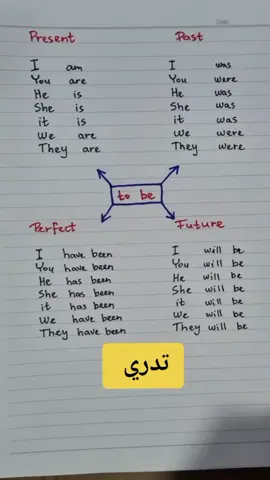 Present
I am
You are
He is
She is
it is
We are
They are
Past
I was
You were
He was
She was
it was
We were
They were
to be
Perfect
I have been
You have been
He has been
She has been
it has been
We have been
They have been
Future
I will be
You will be
He will be
She will be
it will be
We will be
They will be
تدري